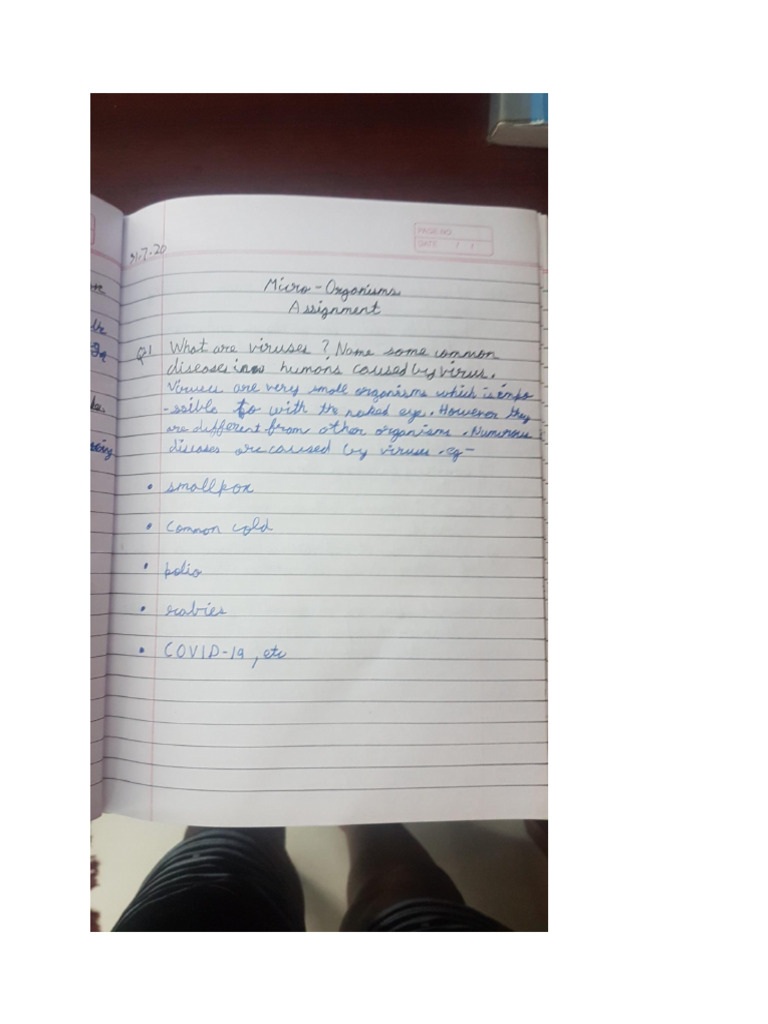 PAGE NO.
DATE / /
31.7.20
Micro-Organisms
Assignment
Q1 What are viruses ? Name some common
diseases in humans caused by virus.
Viruses are very small organisms which is impo
-ssible to with the naked eye. However they
are different from other organisms. Numerous
diseases are caused by viruses. eg-
• smallpox
• common cold
• polio
• rabies
• COVID-19, etc